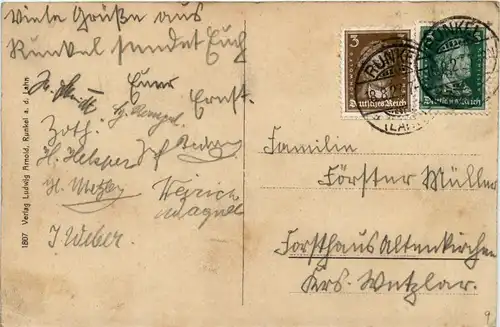 Viele Grüße aus
Runkel sendet Euch
Euer
Ernst.
Zoth.
H. Metzler
Heinrich
J. Weber.
1807 Verlag Ludwig Arnold, Runkel a. d. Lahn
3
Deutsches Reich
Deutsches Reich
RUNKEL
(LAHN)
RUNKEL
Familie
Förster Müller
Forsthaus Altenkirchen
Krs. Wetzlar.
9